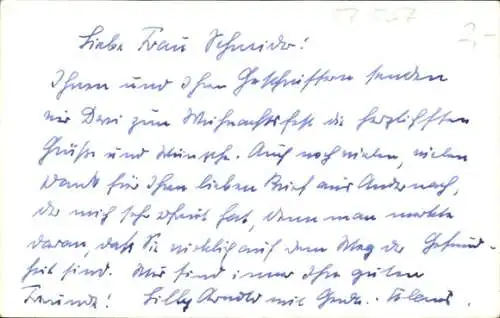 Liebe Frau Schneider!
Ihnen und Ihren Geschwistern senden
wir Drei zum Weihnachtsfest die herzlichsten
Grüße und Wünsche. Auch noch vielen, vielen
Dank für Ihren lieben Brief aus Andernach,
der mich sehr erfreut hat, denn man merkte
daran, daß Sie wirklich auf dem Weg der Gesund-
heit sind. Wir sind immer Ihre guten
Freunde! Lilly Arnold mit
2,-